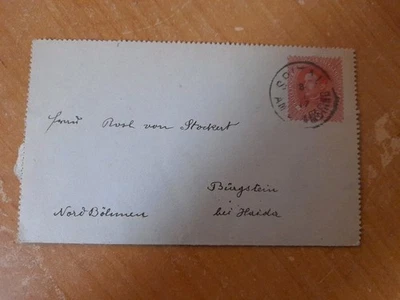 Frau Rosl von Stockert
Bürgstein
Nord Böhmen bei Haida